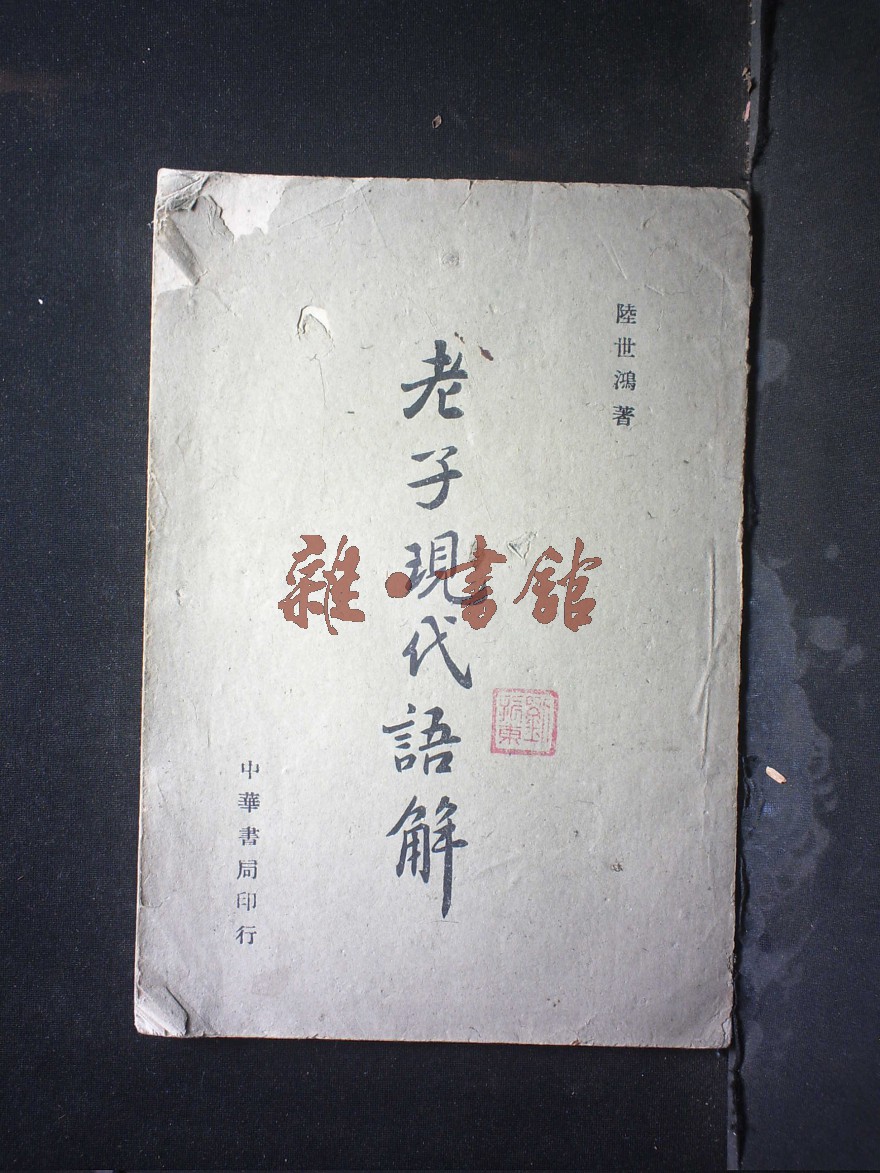 陸世鴻著
老子現代語解
中華書局印行
雜·書館